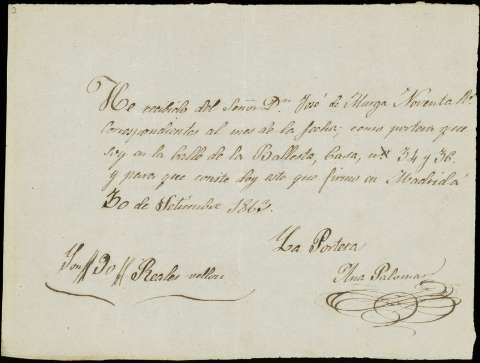 He recibido del Señor Dn José de Murga Noventa Rs
correspondientes al mes de la fecha, como portera que
soy en la Calle de la Ballesta, Casa, nº 34 y 36.
y para que conste doy este que firmo en Madrid á
30 de Setiembre 1863.
La Portera
Son 90 Reales vellon
Ana Palomar